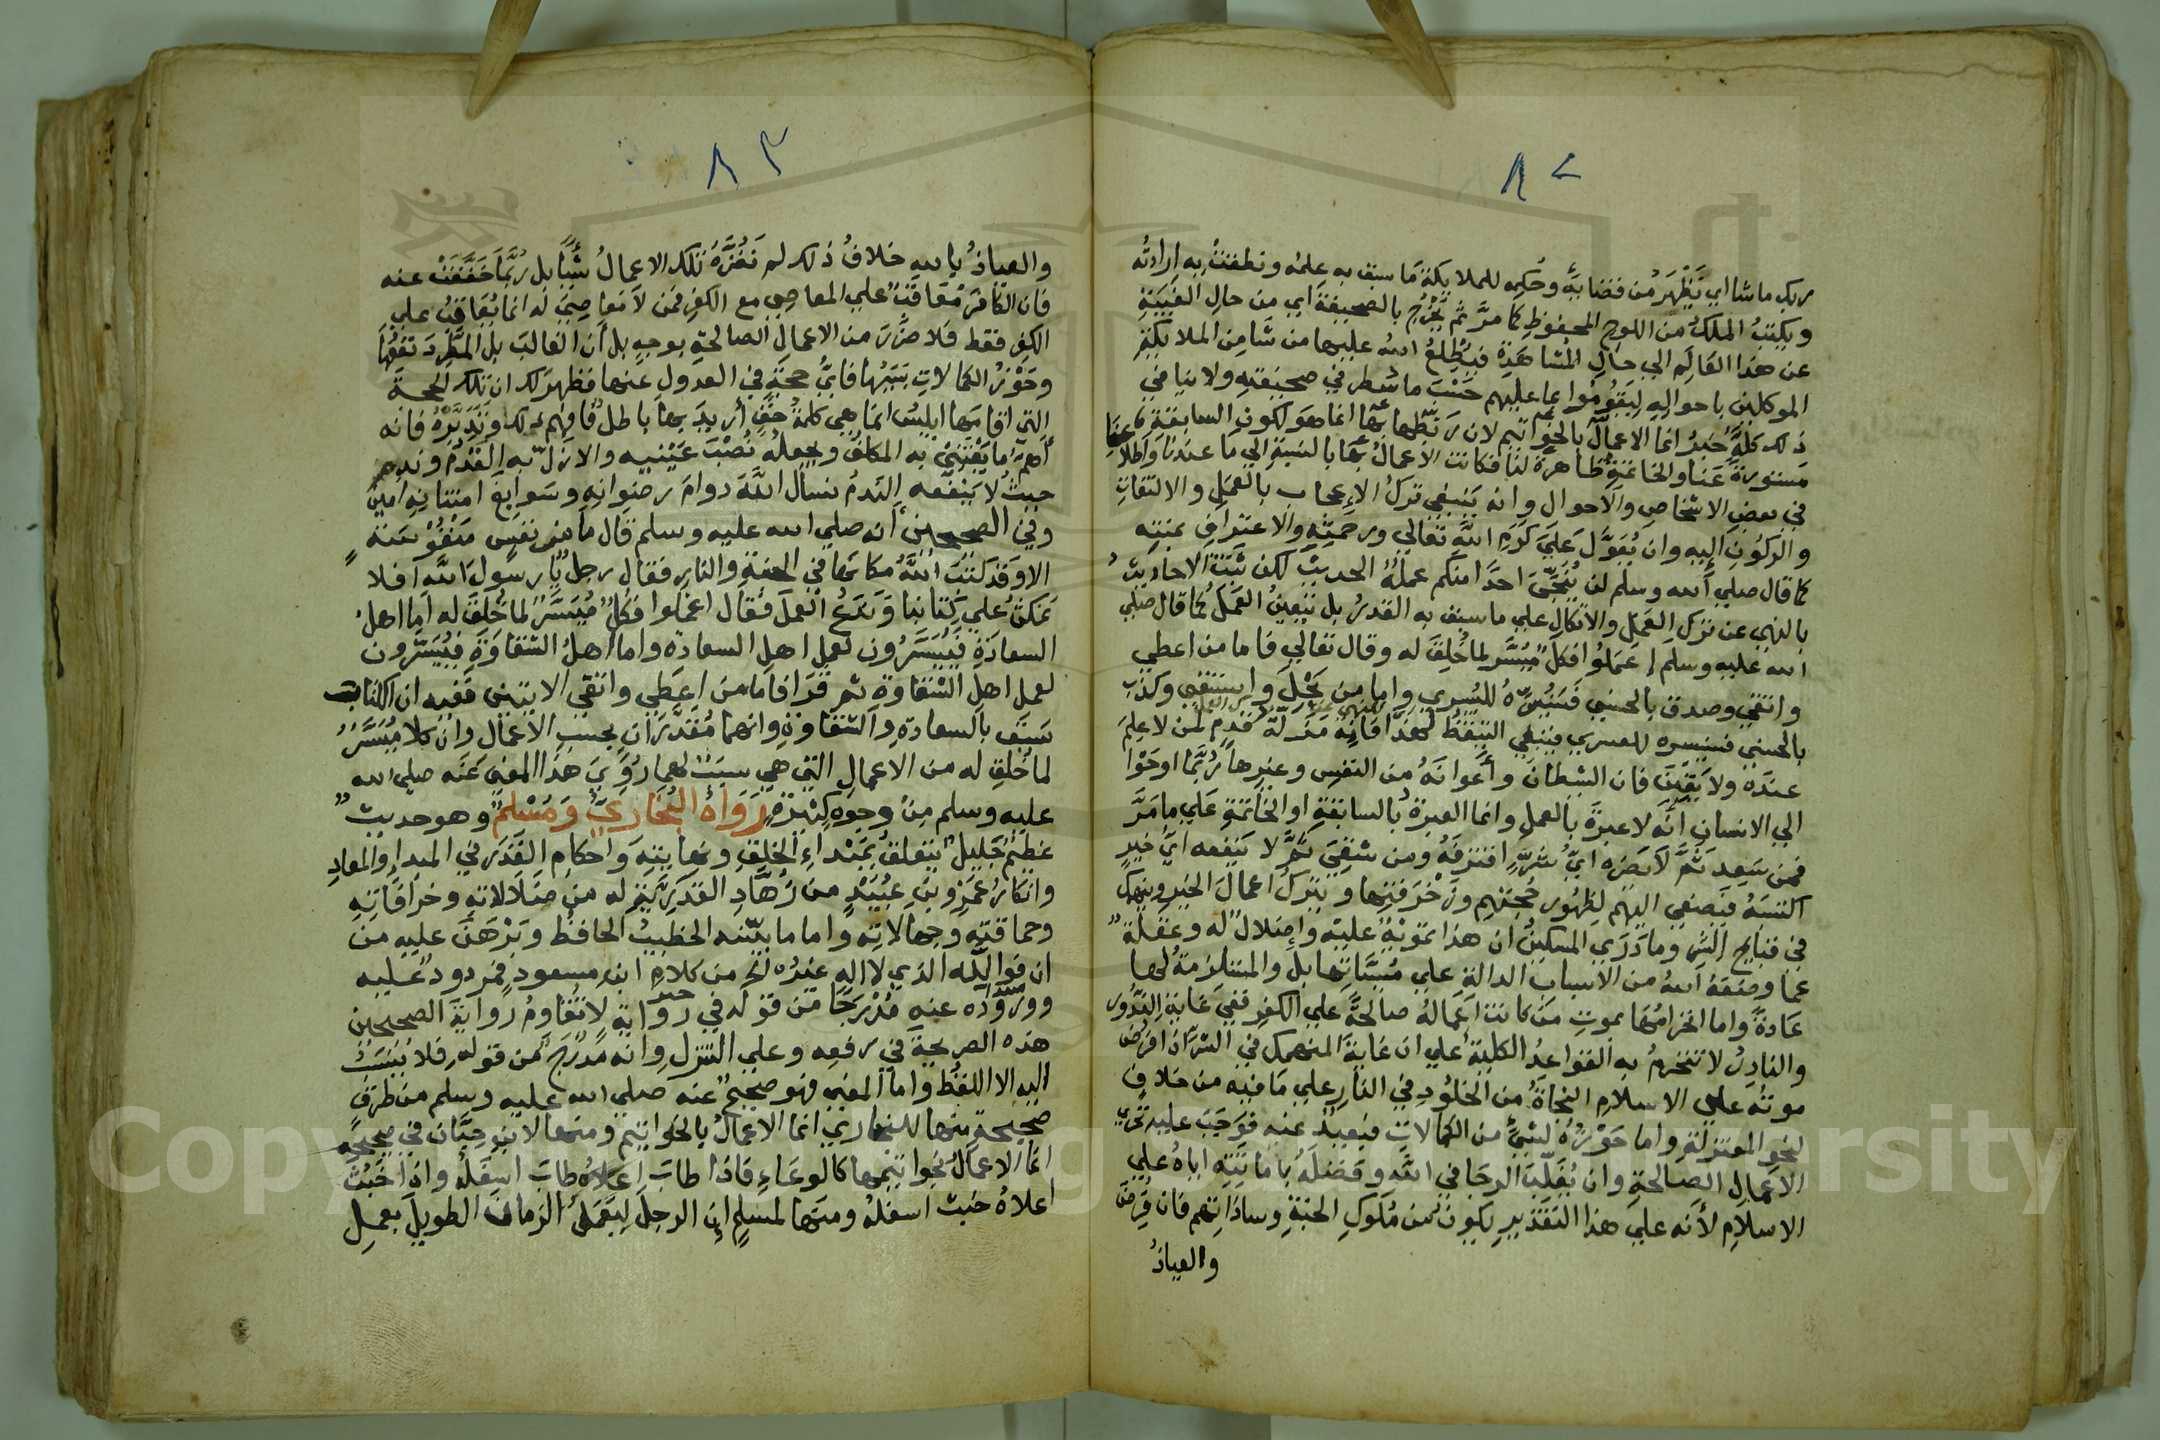 ٨٢
ربك ما شا اي يَظْهَرُ من قضايةٍ وحُكمِه للملايكةِ مَا سبق به علمُه ونطقتْ به اِرادتُه
ويكتبُ الملكُ من اللوح المحفوظِ كما مرَّ ثم يَخْرُجُ بالصحيفةَ اي من حالِ الغَيْبَةِ
عن هذا العَالَمِ الي حال المُشاهَدَةِ فيُطْلِعُ اللهُ عليها من شَا من الملايكة
الموكلين باحوالِهِ لِيَقُومُوا بما عليهم حَسْبَ ما سُطر في صحيفتِه ولا ينافي
ذلك كلَّهُ خبرُ انما الاعمالُ بالخواتيم لان رَبْطَها بها انما هو لكون السابقةِ
مستورةً عنا والخاتمةِ ظاهرةً لنا فكانت الاعمالُ بها بالنسبةِ الي ما عندنا واطلاعنا
في بعضِ الاشخاصِ والاحوال وانه يَنبغي تركُ الاِعجاب بالعملِ والالتفاتِ
والركونِ اليه وان يُعَوَّلَ علي كَرَمِ اللهِ تعالي ورحمتِه والاعترافِ بمنتِه
كما قال صلي الله وسلم لن يُنَجِّيَ احدًا منكم عملُهُ الحديثَ لكن ثبتت الاحاديثُ
بالنهي عن تركِ العملِ والاتكالِ علي ما سبق به القدرُ بل يتعينُ العمَلُ كما قال صلي
الله عليه وسلم اِعمَلُوا فكلٌّ مُيَسَّر لما خُلِقَ له وقال تعالي فاما من اعطي
واتقي وصدق بالحسني فسَنُيَسِّرُهُ لليُسري واما من بَخِلَ واستغني وكذب
بالحسني فسنيسره للعسري فينبغي التيقظُ لهذا فانه مَزَلَّةُ قَدَمٍ لمن لا علمَ
عندَه ولا يَقِينَ فان الشيطانَ وأَعوانَهُ من النفسِ وغيرها رُبَّما اوحَوْا
الي الانسانِ أنه لا عبرَةَ بالعملِ وانما العبرةُ بالسابقةِ او الخاتمةِ عَلي ما مَرَّ
فمن سَعِدَ ثَمَّ لا يَضره ايُّ شرٍّ اقترفَهُ ومن شَقِيَ ثَمَّ لا يَنفعه ايُّ خيرٍ
اكتسبَهُ فيَصغي اليهم لِظهُور حُجتهم وزَخرَفتِها ويتركُ اعمالَ الخير وينهمك
في قبايح الشر وما دَرَي المسكينُ ان هذا تمويهٌ عليه واِضلالٌ له وغفلَةٌ
عما وضعَهُ اللهُ من الاسبابِ الدالةِ علي مُسَبَّباتِها بل والمستلزمةُ لها
عَادةً واما انخرامُها بموتِ مَن كانت اعمَالهُ صالحةً علي الكفرِ ففي غايةِ النُّدُور
والنادرُ لا تنخرمُ به القواعدُ الكليةُ علي ان غايةَ المنهمك في الشرِّ اذا فرض
موتُه علي الاسلامِ النجاةُ من الخلُودِ في النارِ علي ما فيه من خلافٍ
لنحوِ المعتزلةِ واما حَوْزُهُ لشيءٍ من الكمالاتِ فبعيدٌ عنه فوجَبَ عليه تحري
الاعمالِ الصالحةِ وان يُغَلِّبَ الرجا في اللهِ وفضلَهُ باماتتِهِ اياهُ علي
الاسلامِ لأنه علي هذا التقديرِ يكونُ من مُلوكِ الجنةِ وساداتهم فان فُرِضَ
والعياذُ
٨٣
والعياذُ بالله خلافُ ذلك لم تَضُرَّهُ تلك الاعمالُ شَيأً بل رُبَّما خَفَّفَتْ عنه
فان الكافرَ مُعاقَبٌ علي المعاصِي مع الكفرِ فمن لا معاصيَ له انما يُعَاقبُ علي
الكفر فقط فلا ضَرَرَ من الاعمالِ الصالحةِ بوجهٍ بل ان الغالبَ بل المطَّردَ نفعُها
وحَوْزُ الكمالاتِ بسَبَبِها فايُّ حجةٍ في العدولِ عنها فظهر لك ان تلك الحجةَ
التي اقامَها ابليسُ انما هي كلمةُ حَقٍّ أُريدَ بها باطلٌ فافهم ذلك وتدَبَّرْهُ فانه
أهمُّ ما يَعْتَني به المكلفُ ويجعلُه نُصْبَ عَيْنيه والا زلَّ به القدَمُ وندم
حيثُ لا يَنْفَعه الندمُ نسألُ اللهَ دوامَ رضوانِه وسَوابغَ امتنانِه امين
وفي الصحيحين أنه صلي الله عليه وسلم قال ما من نفسٍ منفوْسَةٍ
الا وقد كتبَ اللهُ مكانَها في الجنةِ والنارِ فقال رجلٌ يا رسولَ اللهِ افلا
نمكثُ علي كتابنا ونَدَعُ العملَ فقال اعمَلوا فكلٌّ مُيَسَّرٌ لما خُلِقَ له اما اهلُ
السعادَةِ فيُيَسَّرُون لعملِ اهلِ السعادةِ واما اهلُ الشقاوَةِ فيُيَسَّرُون
لعمل اهلِ الشقاوةِ ثم قَرَا فاما من اعطي واتقي الايتين ففيه ان الكتابَ
سَبَقَ بالسعادةِ والشقاوةِ وانهما مُقدَّرَانِ بحسبِ الاعمالِ وان كلا مُيَسَّرٌ
لما خُلق له من الاعمالِ التي هي سببٌ لهما رُوِيَ هذا المعني عنه صلي الله
عليه وسلم مِنْ وجوهٍ كثيرةٍ رَوَاهُ البُخَارِيُّ وَمُسْلمٌ وهو حديثٌ
عظيمٌ جليلٌ يتعلقُ بمَبْتداءِ الخلقِ ونهايتِهِ واحكامِ القَدَرِ في المبداءِ والمعادِ
وانكارُ عَمْرِو بنِ عُبَيْدٍ من زُهَّادِ القدَرِيَّةِ له من ضَلالاتِهِ وخرافاتِهِ
وحماقتِه وجهالاتِه واما ما بيَّنه الخطيبُ الحافظُ وبَرْهَنَ عليه من
ان فوالله الذي لا اله غيرُه الخ من كلام ابنِ مسعودٍ فمردودٌ عليه
وورودُه عنه مُدْرَجًا من قوله في رواية لا تُقَاوِمُ روايةَ الصحيحين
هذه الصريحةَ في رفعِه وعلي التنزلِ وانه مُدْرَجٌ من قوله فلا يُنسَبُ
اليه الا اللفظُ واما المعني فهو صحيحٌ عنه صلي الله عليه وسلم من طرقٍ
صحيحةٍ منها للبخاري انما الاعمالُ بالخواتيم ومنها لابنِ حِبَّانَ في صحيحه
انما الاعمالُ بخواتيمها كالوعَاءِ فاذا طابَ اعلاهُ طابَ اسفلُه واذا خَبُثَ
اعلاهُ خبُث اسفلُه ومنها لمسلمٍ اِن الرجلَ ليَعْمَلُ الزمانَ الطويلَ بعملِ